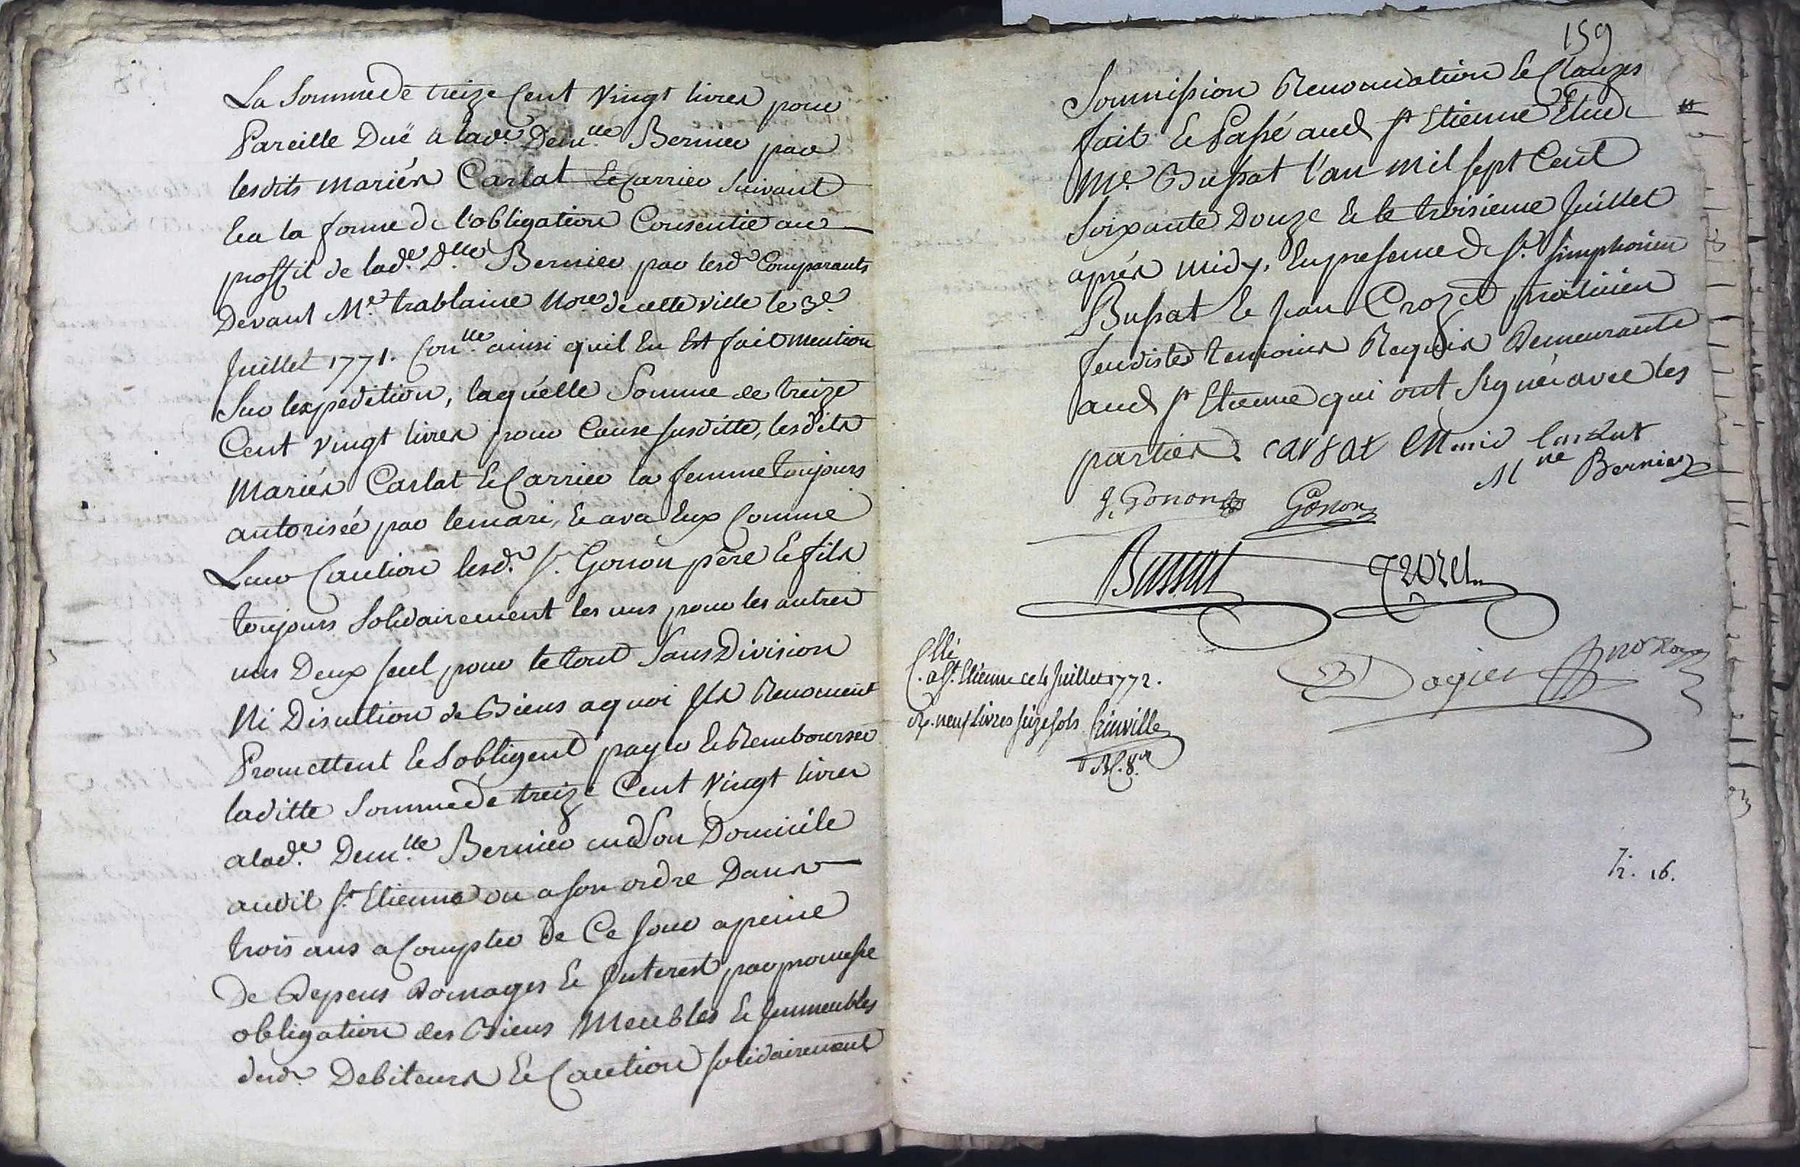 La Somme de treize Cent Vingt livres pour
Pareille Dué a lade. Demlle Bernier par
lesdits mariés Carlat & Carrier Suivant
& a la forme de l'obligation Consentie au
proffit de lade. Dlle Bernier par lesd. Comparants
Devant Me. trablaine Nore. de cette ville le 3e.
Juillet 1771. Conlle. ainsi quil En Est fait mention
Sur lexpedition, laquélle Somme de treize
Cent Vingt livres pour Cause susditte, lesdits
Mariés Carlat & Carrier la femme toujours
autorisée par lemari, & avec Eux Comme
Leur Caution lesd. Srs. Gonon père & fils
toujours Solidairement les uns pour les autres
un Deux seul pour le tout Sans Division
Ni Discution de Biens a quoi Ils Renoncent
Promettent & S'obligent payer & Rembourser
laditte Somme de treize Cent Vingt livres
a lade. Demlle. Bernier en Son Domicile
audit St. Etienne ou a son ordre Dans
trois ans a Compter de Ce Jour a peine
De Depens Domages & Interest par promesse
obligation des Biens Meubles & Immeubles
desd. Debiteurs & Caution solidairement
159
Soumission Renonciation & Clauzes
fait & Passé aud. St. Etienne Etude
Me. Bussat l'an mil sept Cent
Soixante Douze & le troisieme Juillet
après midy, En presence de Sr. Simphorien
Bussat & Jean Crozet praticien
feudiste temoins Requis Demeurants
aud. St. Etienne qui ont Signé avec les
parties. carlat Marie Carlat
Mne Bernier
J. Gonon Gonon
Bussat Crozet
Dagier
C.lle
C. a St. Etienne ce 4 Juillet 1772.
R. neuf Livres seize sols
16.